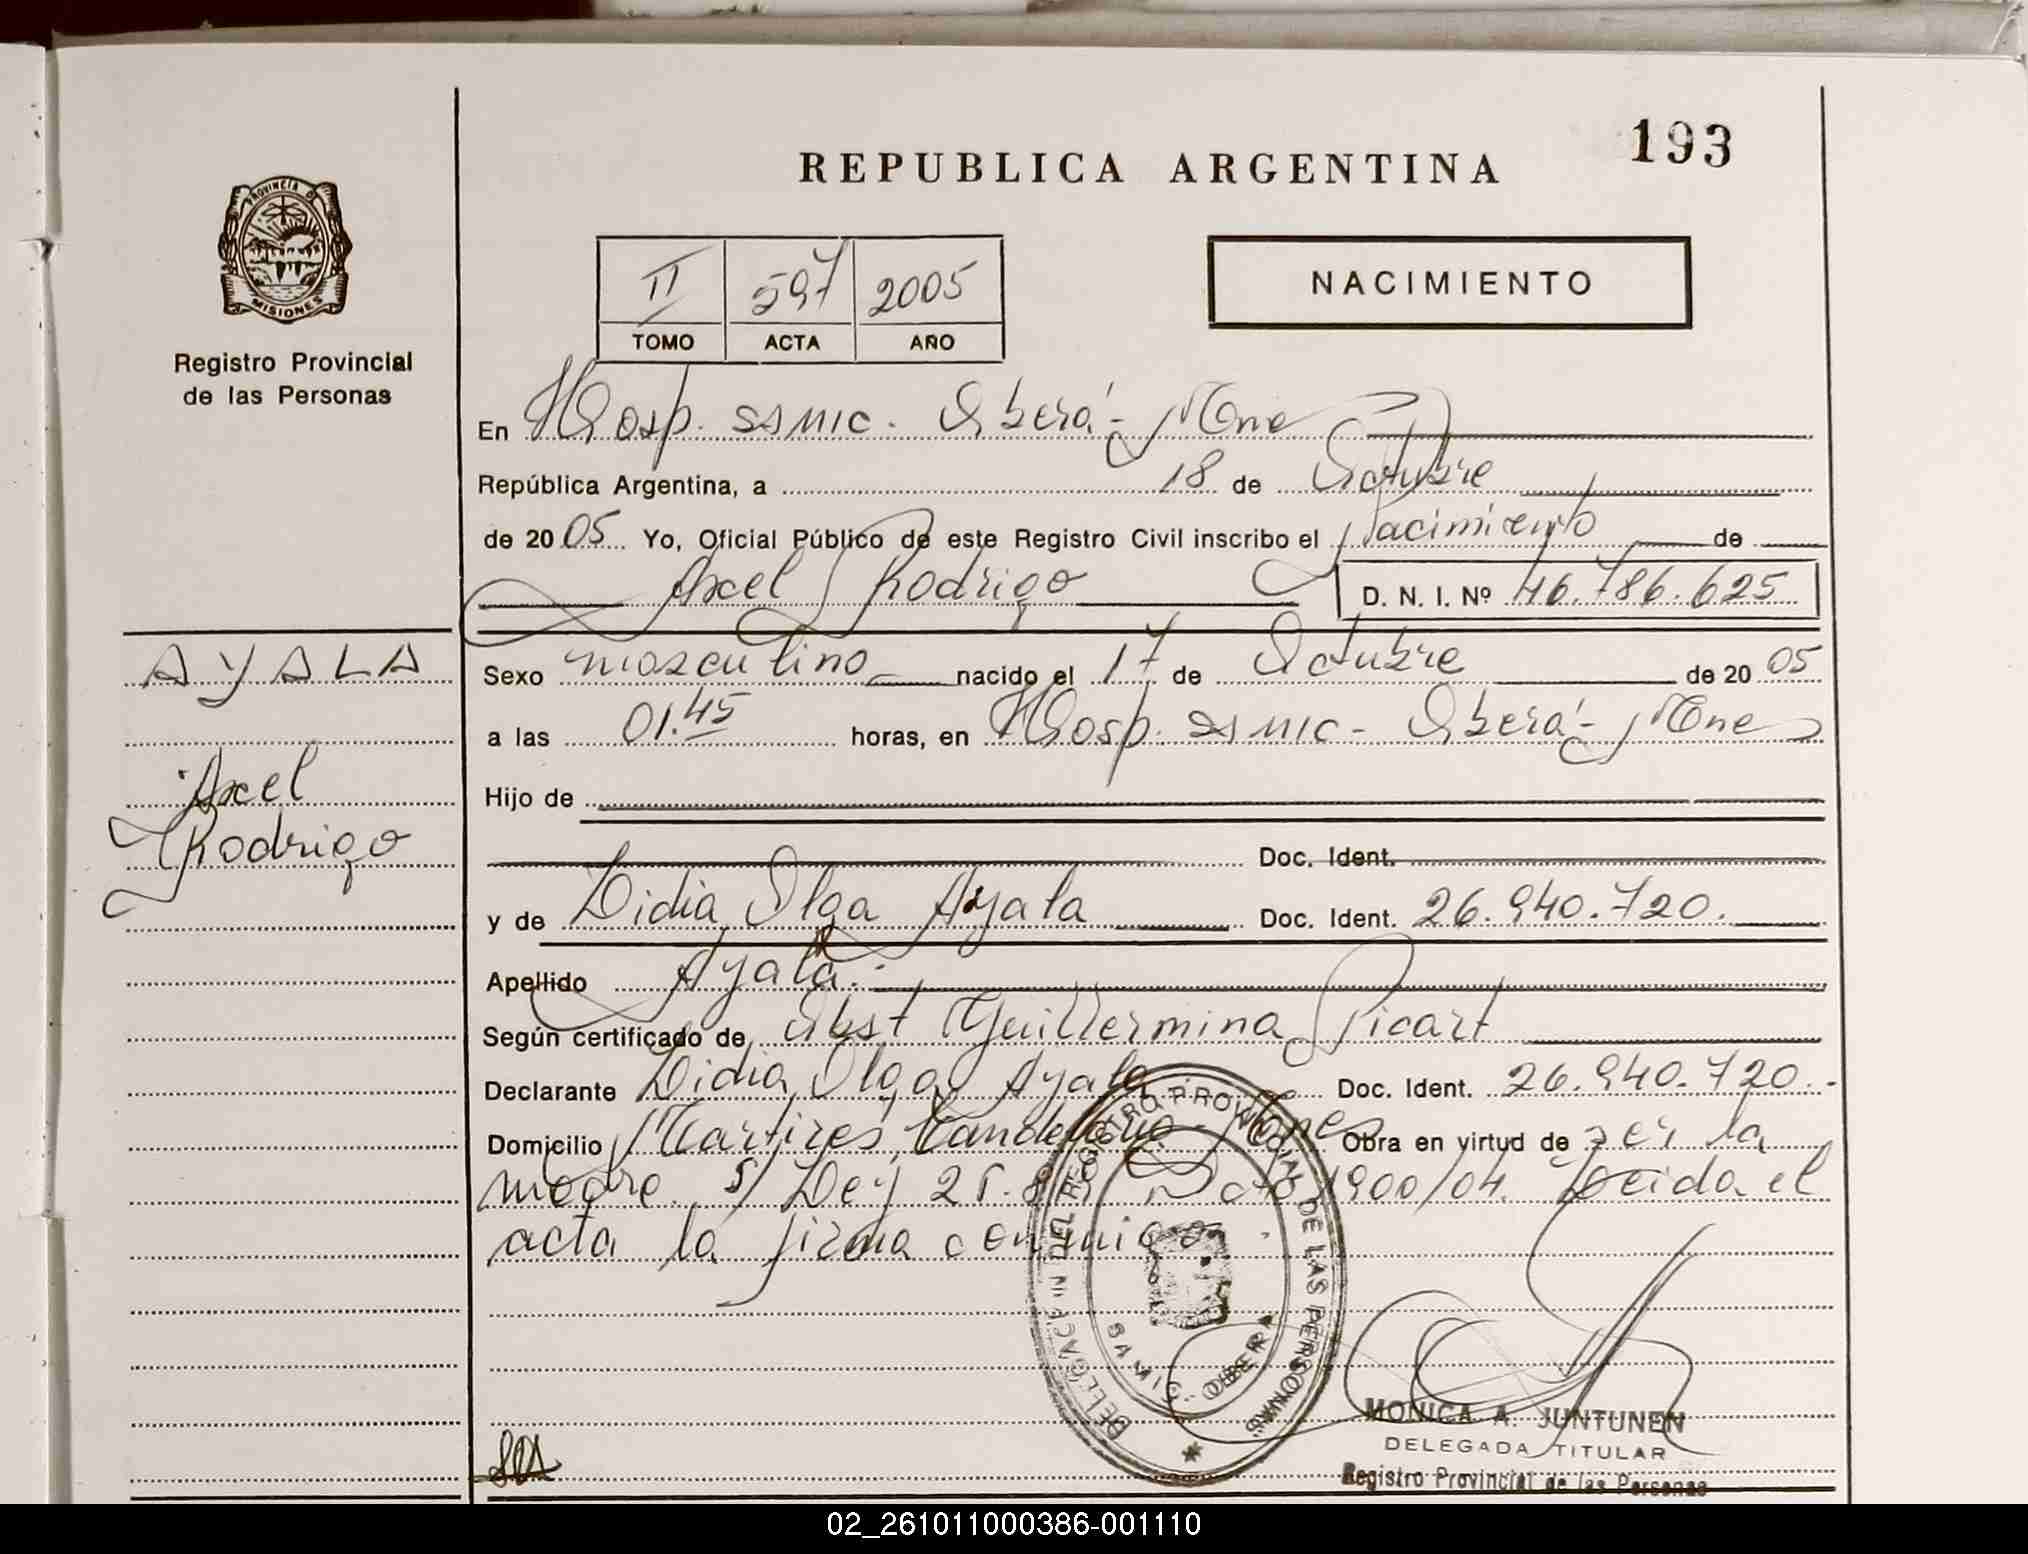 193
REPUBLICA ARGENTINA
PROVINCIA D
MISIONES
Registro Provincial
de las Personas
NACIMIENTO
II 597 2005
TOMO ACTA AÑO
En Hosp. SSMIC. Oberá- Mnes
República Argentina, a 18 de Octubre
de 2005 Yo, Oficial Público de este Registro Civil inscribo el Nacimiento de
Axel Rodrigo D. N. I. Nº 46.786.625
AYALA
Sexo masculino nacido el 17 de Octubre de 2005
a las 01.45 horas, en Hosp. SSMIC- Oberá- Mnes
Axel
Rodrigo
Hijo de
Doc. Ident.
y de Lidia Olga Ayala Doc. Ident. 26.940.720.
Apellido Ayala.
Según certificado de Obst Guillermina Picart
Declarante Lidia Olga Ayala Doc. Ident. 26.940.720.-
Domicilio Martires, Candelaria- Mnes Obra en virtud de ser la
madre. S/ Ley 25. 1900/04. Leida el
acta la firma conmigo.
DELEGACION DEL REGISTRO PROVINCIAL DE LAS PERSONAS
SAMIC. OBERA
MONICA A. JUNTUNEN
DELEGADA TITULAR
Registro Provincial de las Personas
02_261011000386-001110